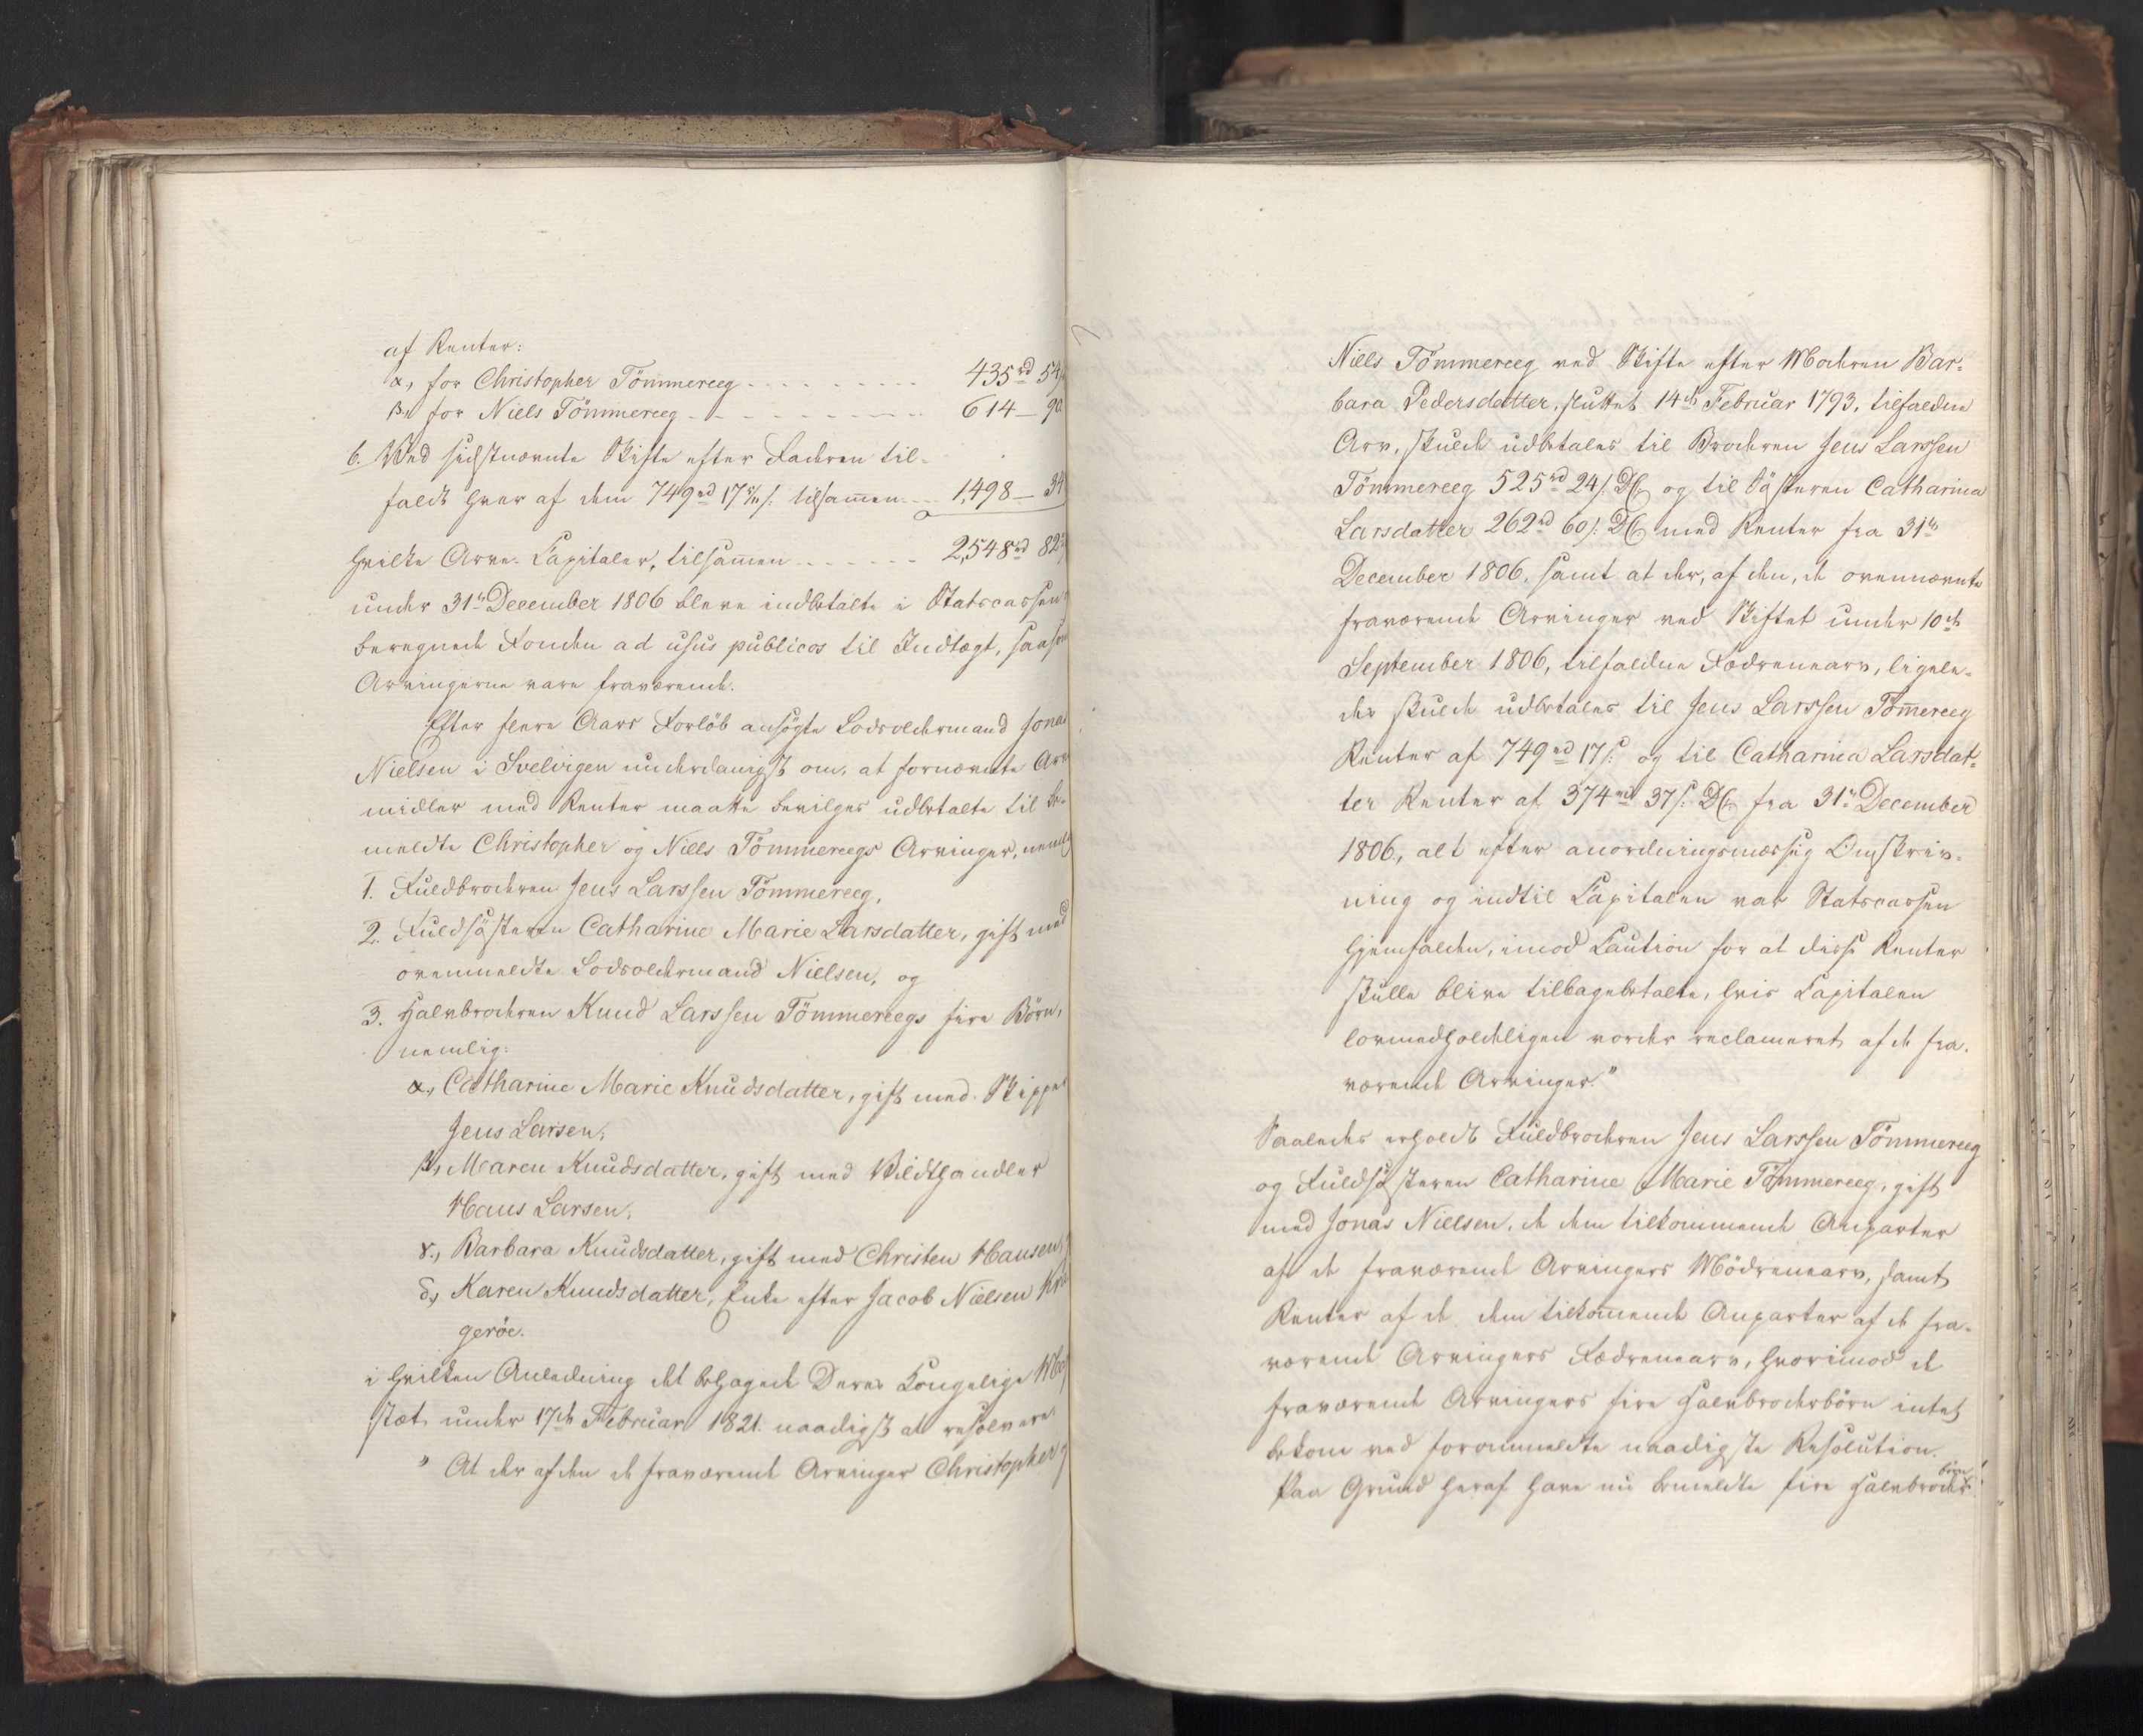 af Renter:
α, for Christopher Tömmereeg - - - - - - - - - 435rd 54
β, for Niels Tömmereeg - - - - - - - - - 614 — 90
b. Ved sidstnævnte Skifte efter Faderen til-
faldt hver af dem 749rd 17 s. tilsammen - - 1,498 — 34
hvilke Arve-Capitaler, tilsammen - - - - - - - 2,548rd 82
under 31te December 1806 bleve indbetalte i Statscassen
beregnede Fonden ad usus publicos til Indtægt, saasom
Arvingerne vare fraværende.
Efter flere Aars Forløb ansøgte Lodsoldermand Jonas
Nielsen i Svelvigen underdanigst om, at fornævnte Arve
midler med Renter maatte bevilges udbetalte til be-
meldte Christopher og Niels Tömmereegs Arvinger, nemlig
1. Fuldbroderen Jens Larssen Tömmereeg,
2. Fuldsøsteren Catharine Marie Larsdatter, gift med
ovenmeldte Lodsoldermand Nielsen, og
3. Halvbroderen Knud Larssen Tömmereegs fire Börn,
nemlig:
α, Catharine Marie Knudsdatter, gift med Skipper
Jens Larsen,
β, Maren Knudsdatter, gift med Vildthandler
Hans Larsen,
γ, Barbara Knudsdatter, gift med Christen Hansen,
δ, Karen Knudsdatter, Enke efter Jacob Nielsen Kra
geröe.
i hvilken Anledning det behagede Deres Kongelige May
stæt under 17de Februar 1821. naadigst at resolvere:
" At der af den de fraværende Arvinger Christopher
Niels Tömmereeg ved Skifte efter Moderen Bar-
bara Pedersdatter, sluttet 14de Februar 1793, tilfaldne
Arv, skulde udbetales til Broderen Jens Larssen
Tömmereeg 525rd 24 s. DC, og til Søsteren Catharina
Larsdatter 262rd 60 s. DC, med Renter fra 31te
December 1806, samt at der, af den, de ovennævnte
fraværende Arvinger ved Skiftet under 10de
September 1806, tilfaldne Fædrenearv, ligele-
des skulde udbetales til Jens Larssen Tömereeg
Renter af 749rd 17 s. og til Catharina Larsdat-
ter Renter af 374rd 37 s. DC fra 31te December
1806, alt efter anordningsmæssig Omskriv-
ning og indtil Capitalen var Statscassen
hjemfalden, imod Caution for at disse Renter
skulle blive tilbagebetalte, hvis Capitalen
lovmedholdeligen vorder reclameret af de fra-
værende Arvinger."
Saaledes erholdt Fuldbroderen Jens Larssen Tömmereeg
og Fuldsøsteren Catharine Marie Tömmereeg, gift
med Jonas Nielsen, de dem tilkommende Anparter
af de fraværende Arvingers Mödrenearv, samt
Renter af de dem tilkomende Anparter af de fra-
værende Arvingers Fædrenearv, hvorimod de
fraværende Arvingers fire Halvbroderbörn intet
bekom ved forommeldte naadigste Resolution.
Paa Grund heraf have nu bemeldte fire Halvbroder
börn